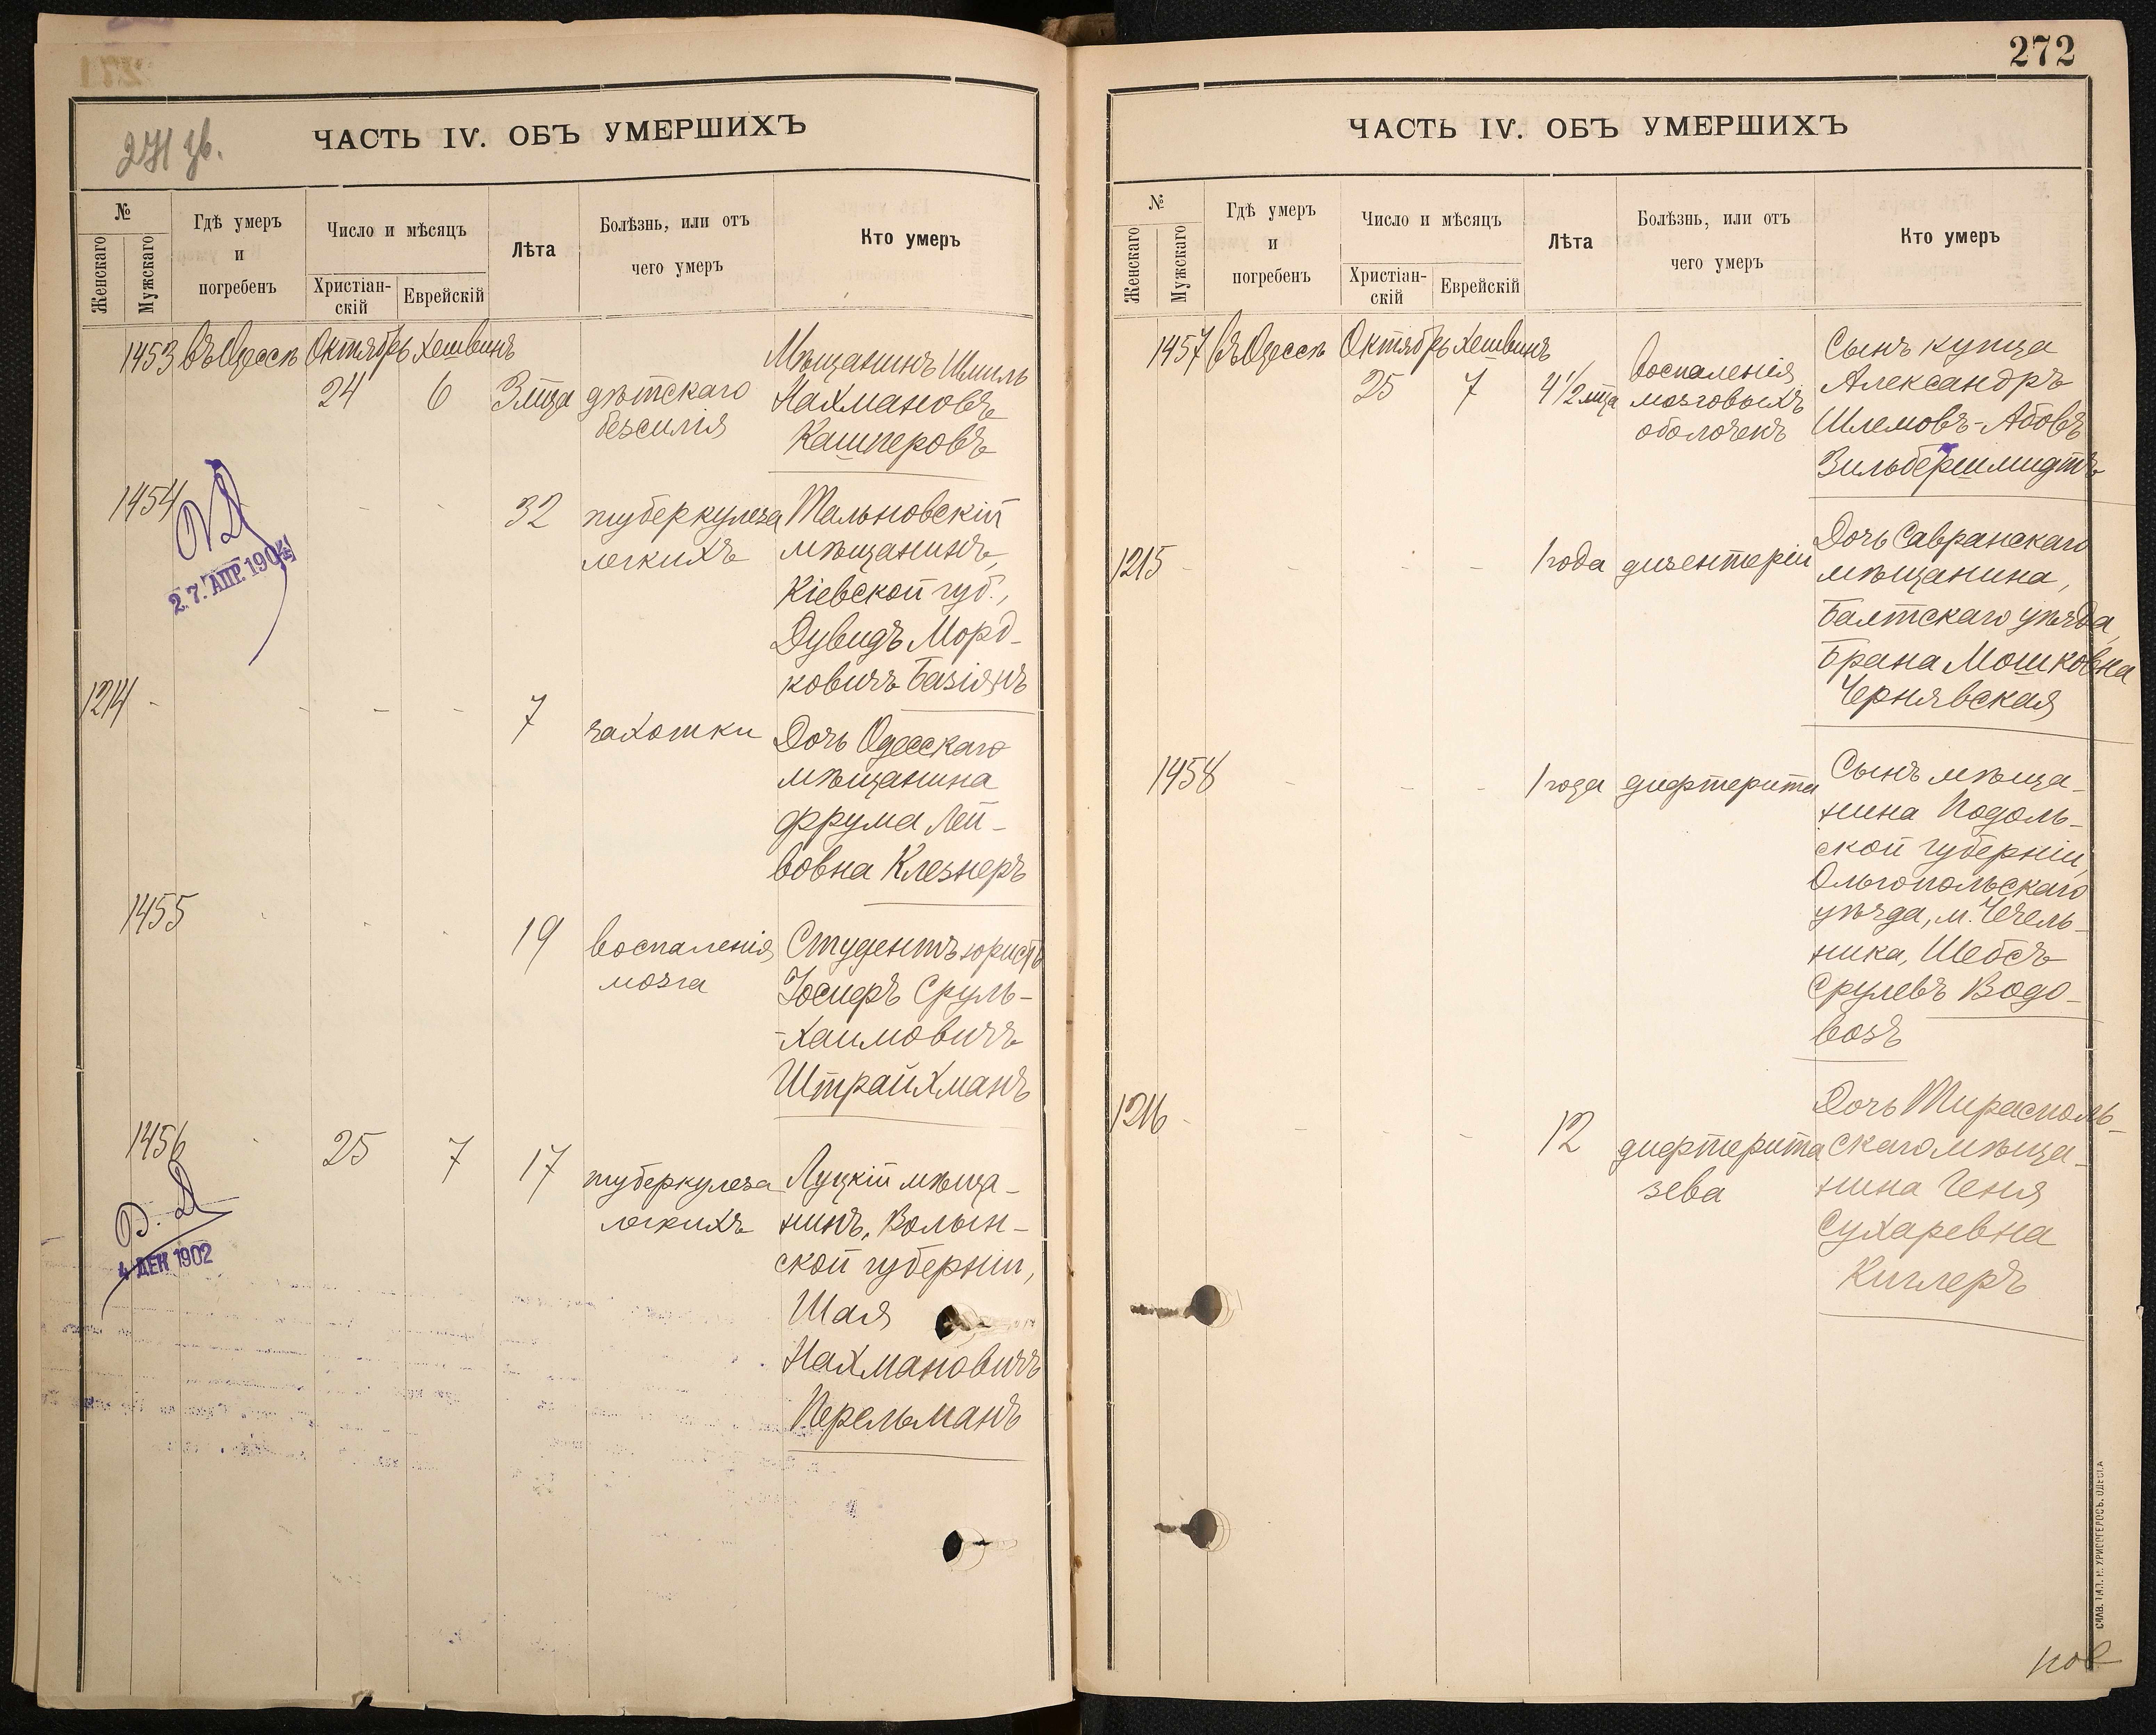 271 зв.
ЧАСТЬ IV. ОБЪ УМЕРШИХЪ
№
Женскаго
Мужскаго
Гдѣ умеръ
и
погребенъ
Число и мѣсяцъ
Христіан-
скій
Еврейскій
Лѣта
Болѣзнь, или отъ
чего умеръ
Кто умеръ
1453 въ Одессѣ Октябрь Хешвинъ
24 6 3 м̄ца дѣтскаго
безсилія
Мѣщанинъ Шмиль
Нахмановъ
Кашперовъ
1454
27. АПР. 1904
32 туберкулеза
легкихъ
Тальновскій
мѣщанинъ,
Кіевской губ.,
Дувидъ Морд-
ковичъ Базіянъ
1214 - - - -
7 чахотки
Дочь Одесскаго
мѣщанина
Фрума Лей-
бовна Клезнеръ
1455
19 воспаленія
мозга
Студентъ юристъ
Іосифъ Сруль-
-Хаимовичъ
Штрайхманъ
1456 25 7 17
В. Д
4 ДЕК 1902
туберкулеза
легкихъ
Луцкій мѣща-
нинъ, Волын-
ской губерніи,
Шая
Нахмановичъ
Перельманъ
272
ЧАСТЬ IV. ОБЪ УМЕРШИХЪ
№
Женскаго
Мужскаго
Гдѣ умеръ
и
погребенъ
Число и мѣсяцъ
Христіан-
скій
Еврейскій
Лѣта
Болѣзнь, или отъ
чего умеръ
Кто умеръ
1457 въ Одессѣ Октябрь Хешвинъ
25 7 4 1/2 м̄ца
воспаленія
мозговыхъ
оболочекъ
Сынъ купца
Александръ
Шлемовъ-Абовъ
Зильбершмидтъ
1215 - - - -
1 года дизентеріи
Дочь Савранскаго
мѣщанина,
Балтскаго уѣзда,
Брана Мошковна
Чернявская
1458 - - -
1 года дифтерита
Сынъ мѣща-
нина Подоль-
ской губерніи,
Ольгопольскаго
уѣзда, м. Чечель-
ника, Шебсъ
Срулевъ Водо-
возъ
1216 - - - -
12 дифтерита
зева
Дочь Тирасполь-
скаго мѣща-
нина Геня
Сухаревна
Киглеръ